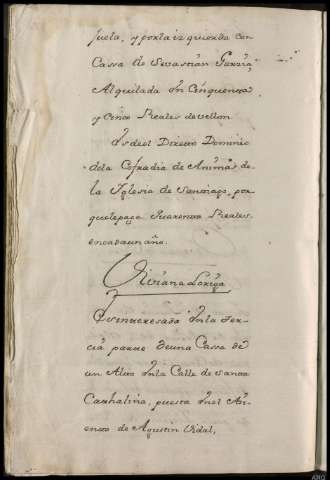 juela, y porla izquierda con
Cassa de Sevastián García,
Alquilada en Cinquenta
y Cinco Reales de vellon
Es del Directo Dominio
dela Cofradia de Animas de
la Yglesia de Santiago, por
quelepaga Quarenta Reales
encadaun año.
Viviana Loriga
Es interesada en la Ter
cia parte deuna Cassa de
un Alto en la Calle de Santa
Cathalina, puesta en el Ar
riendo de Agustin Vidal,